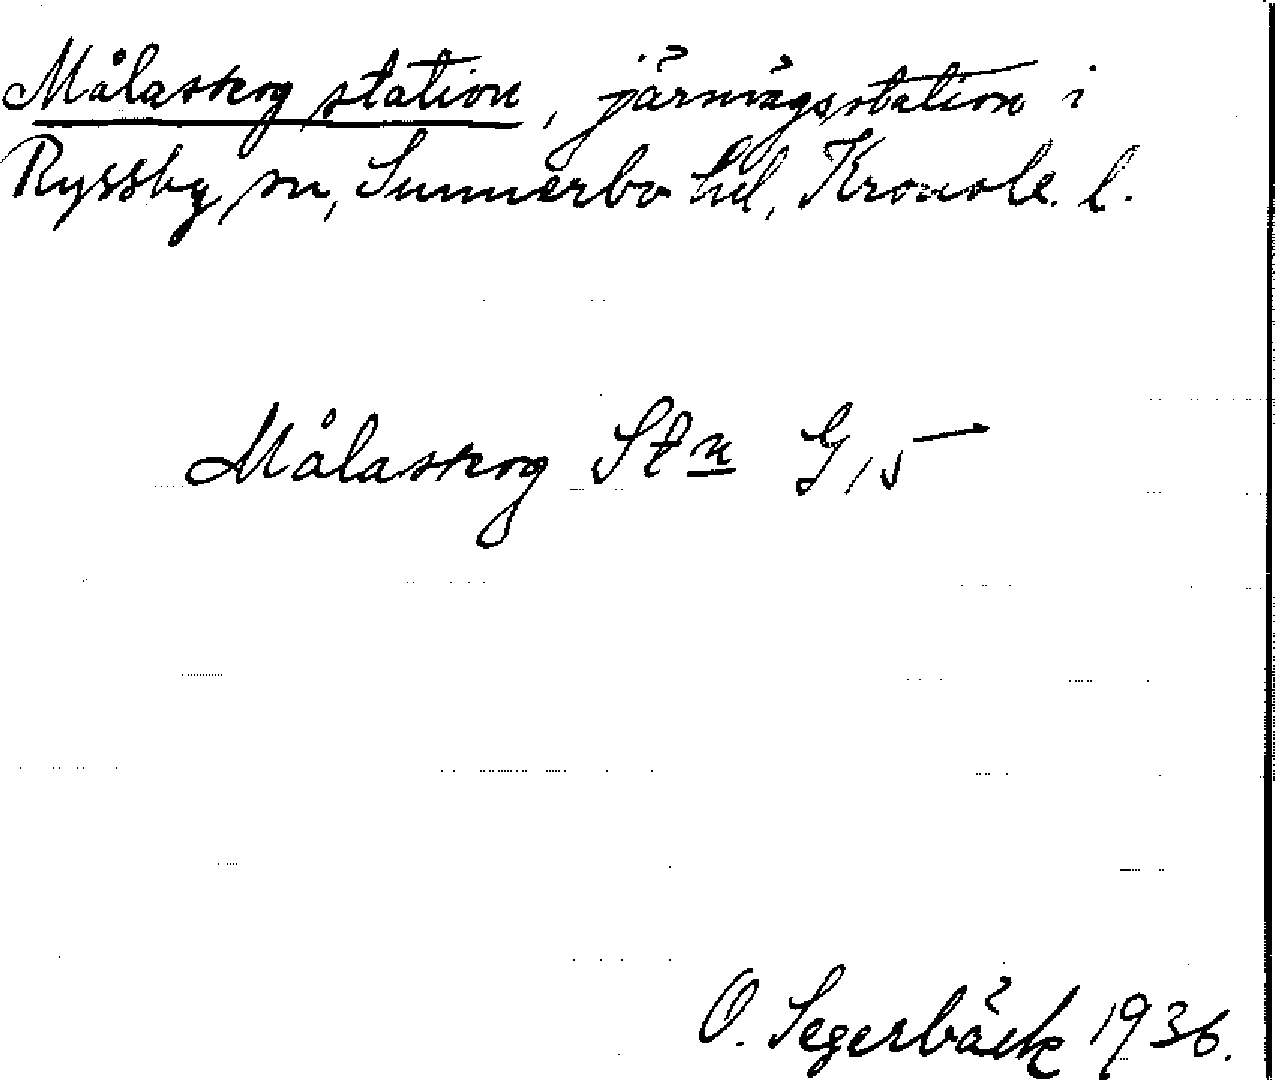 Målaskog station, järnvägsstation i
Ryssby sn, Sunnerbo hd, Kronob. l.
Målaskog Stn G, 5
O. Segerbäck 1936.